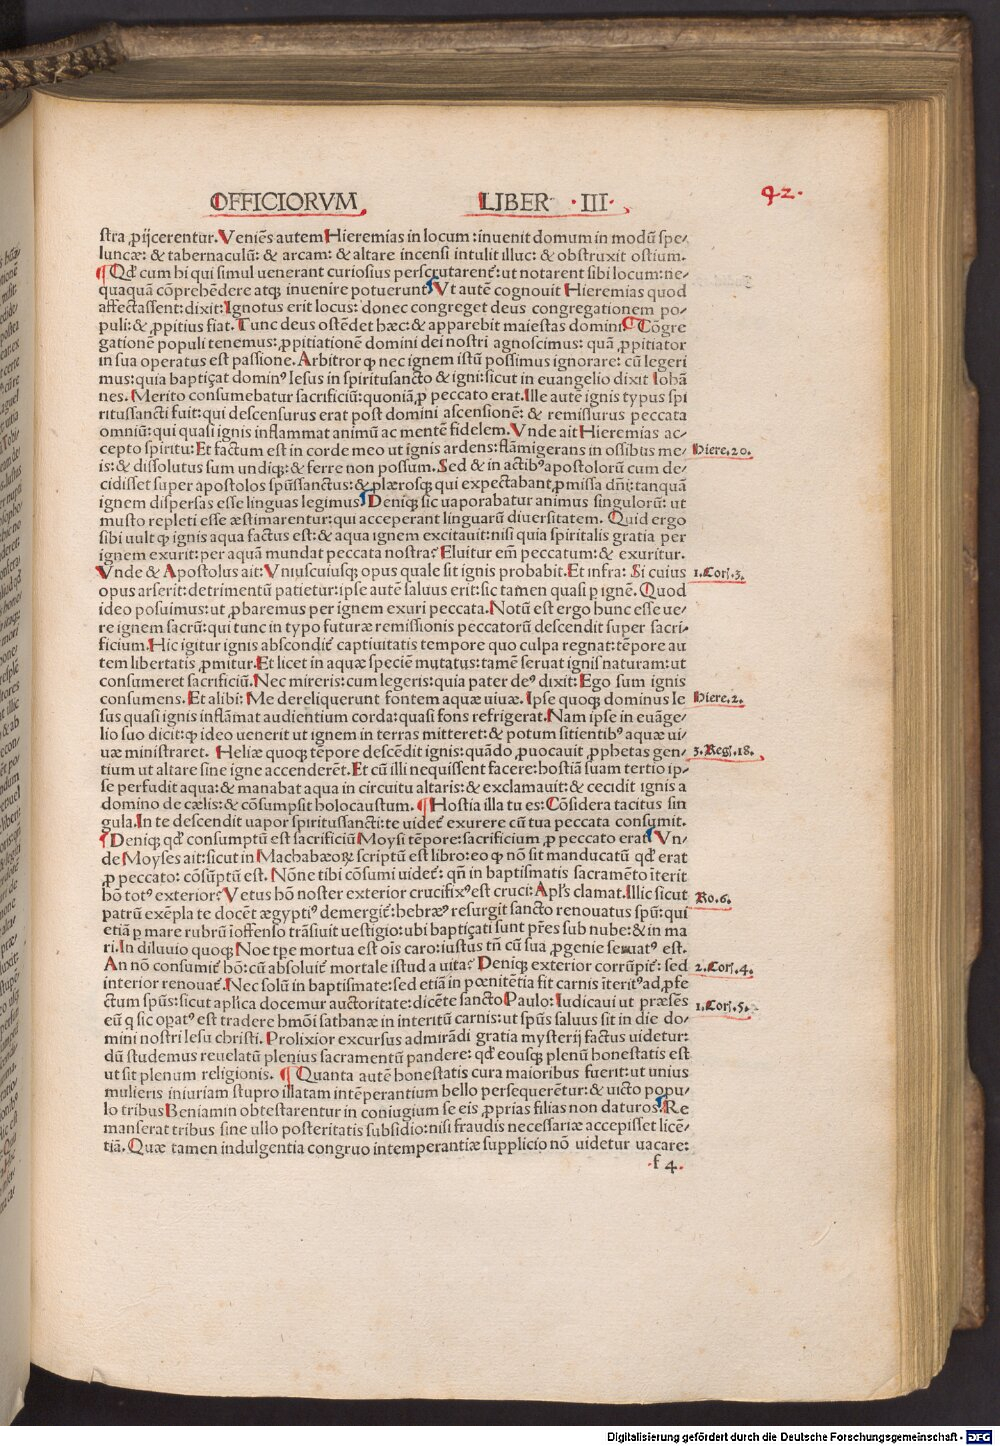 OFFICIORVM LIBER ·III· 42·
stra ꝓijcerentur. Veniẽs autem Hieremias in locum: inuenit domum in modũ spe-
luncæ: & tabernaculũ: & arcam: & altare incensi intulit illuc: & obstruxit ostium.
¶ Qđ cum hi qui simul venerant curiosius perscrutarent᷑: ut notarent sibi locum: ne-
quaquã cõprehẽdere atqꝫ inuenire potuerunt ¶ Vt autẽ cognouit Hieremias quod
affectassent: dixit: Ignotus erit locus: donec congreget deus congregationem po-
puli: & ꝓpitius fiat. Tunc deus ostẽdet hæc: & apparebit maiestas domini. ¶ Cõgre
gationẽ populi tenemus: ꝓpitiationẽ domini dei nostri agnoscimus: quã ꝓpitiator
in sua operatus est passione. Arbitror ꝙ nec ignem istũ possimus ignorare: cũ legeri
mus: quia baptiçat dominꝰ Iesus in spiritusancto & igni: sicut in euangelio dixit Iohã
nes. Merito consumebatur sacrificiũ: quoniã ꝓ peccato erat. Ille autẽ ignis typus spi
ritussancti fuit: qui descensurus erat post domini ascensionẽ: & remissurus peccata
omniũ: qui quasi ignis inflammat animũ ac mentẽ fidelem. Vnde ait Hieremias ac-
cepto spiritu: Et factum est in corde meo ut ignis ardens: flãmigerans in ossibus me- Hiere.20.
is: & dissolutus sum undiqꝫ: & ferre non possum. Sed & in actibꝰ apostolorũ cum de-
cidisset super apostolos spũssanctus: & plærosqꝫ qui expectabant ꝓmissa dñi: tanquã
ignem dispersas esse linguas legimus ¶ Deniqꝫ sic uaporabatur animus singulorũ: ut
musto repleti esse æstimarentur: qui acceperant linguarũ diuersitatem. Quid ergo
sibi uult ꝙ ignis aqua factus est: & aqua ignem excitauit: nisi quia spiritalis gratia per
ignem exurit: per aquã mundat peccata nostra? Eluitur em̃ peccatum: & exuritur.
Vnde & Apostolus ait: Vniuscuiusqꝫ opus quale sit ignis probabit. Et infra: Si cuius 1.Cor.3.
opus arserit: detrimentũ patietur: ipse autẽ saluus erit: sic tamen quasi ꝑ ignẽ. Quod
ideo posuimus: ut ꝓbaremus per ignem exuri peccata. Notũ est ergo hunc esse ue-
re ignem sacrũ: qui tunc in typo futuræ remissionis peccatorũ descendit super sacri-
ficium. Hic igitur ignis abscondit᷑ captiuitatis tempore quo culpa regnat: tẽpore au
tem libertatis ꝓmitur. Et licet in aquæ speciẽ mutatus: tamẽ seruat ignis naturam: ut
consumeret sacrificiũ. Nec mireris: cum legeris: quia pater deꝰ dixit: Ego sum ignis
consumens. Et alibi: Me dereliquerunt fontem aquæ uiuæ. Ipse quoqꝫ dominus Ie Hiere.2.
sus quasi ignis inflãmat audientium corda: quasi fons refrigerat. Nam ipse in euãge-
lio suo dicit: ꝙ ideo uenerit ut ignem in terras mitteret: & potum sitientibꝰ aquæ ui-
uæ ministraret. Heliæ quoqꝫ tẽpore descẽdit ignis: quãdo ꝓuocauit ꝓphetas gen- 3.Reg.18.
tium ut altare sine igne accenderẽt. Et cũ illi nequissent facere: hostiã suam tertio ip-
se perfudit aqua: & manabat aqua in circuitu altaris: & exclamauit: & cecidit ignis a
domino de cælis: & cõsumpsit holocaustum. ¶ Hostia illa tu es: Cõsidera tacitus sin
gula. In te descendit uapor spiritussancti: te uidet᷑ exurere cũ tua peccata consumit.
¶ Deniqꝫ qđ consumptũ est sacrificiũ Moysi tẽpore: sacrificium ꝓ peccato erat ¶ Vn-
de Moyses ait: sicut in Machabæoꝝ scriptũ est libro: eo ꝙ nõ sit manducatũ qđ erat
ꝓ peccato: cõsũptũ est. Nõne tibi cõsumi uidet᷑: qñ in baptismatis sacramẽto ĩterit
hõ totꝰ exterior? Vetus hõ noster exterior crucifixꝰ est cruci: Apl's clamat. Illic sicut Ro.6.
patrũ exẽpla te docẽt ægyptiꝰ demergit᷑: hebræꝰ resurgit sancto renouatus spũ: qui
etiã ꝑ mare rubrũ ĩoffenso trãsiuit uestigio: ubi baptiçati sunt pr̃es sub nube: & in ma
ri. In diluuio quoqꝫ Noe tpe mortua est oĩs caro: iustus tñ cũ sua ꝓgenie seruatꝰ est.
An nõ consumit᷑ hõ: cũ absoluit᷑ mortale istud a uita? Deniqꝫ exterior corrũpit᷑: sed 2.Cor.4.
interior renouat᷑. Nec solũ in baptismate: sed etiã in pœnitẽtia fit carnis ĩteritꝰ ad ꝓfe
ctum spũs: sicut aplica docemur auctoritate: dicẽte sancto Paulo: Iudicaui ut præsẽs 1.Cor.5.
eũ q sic opatꝰ est tradere hmõi sathanæ in interitũ carnis: ut spũs saluus sit in die do-
mini nostri Iesu christi. Prolixior excursus admirãdi gratia mysterij factus uidetur:
dũ studemus reuelatũ plenius sacramentũ pandere: qđ eousqꝫ plenũ honestatis est
ut sit plenum religionis. ¶ Quanta autẽ honestatis cura maioribus fuerit: ut unius
mulieris iniuriam stupro illatam intẽperantium bello persequerẽtur: & uicto popu-
lo tribus Beniamin obtestarentur in coniugium se eis ꝓprias filias non daturos? ¶ Re
manserat tribus sine ullo posteritatis subsidio: nisi fraudis necessariæ accepisset licẽ-
tiã. Quæ tamen indulgentia congruo intemperantiæ supplicio nõ uidetur uacare:
·f 4·
Digitalisierung gefördert durch die Deutsche Forschungsgemeinschaft - DFG